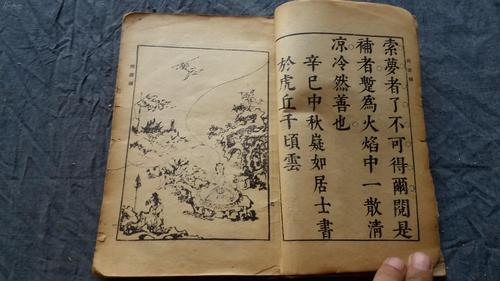 索夢者了不可得爾閱是
補者蹔為火焰中一散清
凉冷然善也
辛巳中秋嶷如居士書
於虎丘千頃雲